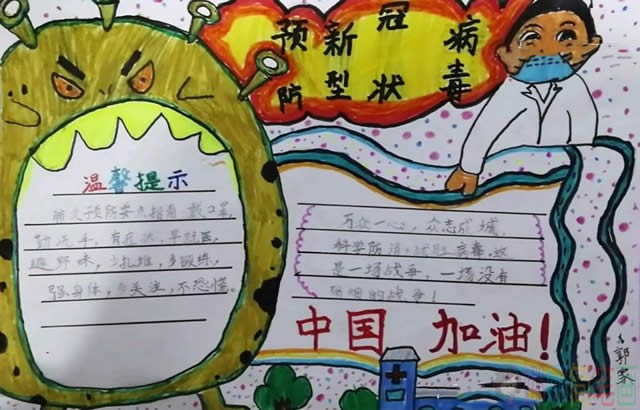 预防新型冠状病毒
温馨提示
肺炎预防要点指南 戴口罩,
勤洗手,有症状,早就医,
野味,少扎堆,多锻炼,
强身体,多关注,不恐慌。
万众一心,众志成城,
科学防治,战胜病毒,这
是一场战争,一场没有
硝烟的战争!
中国 加油!
郭家